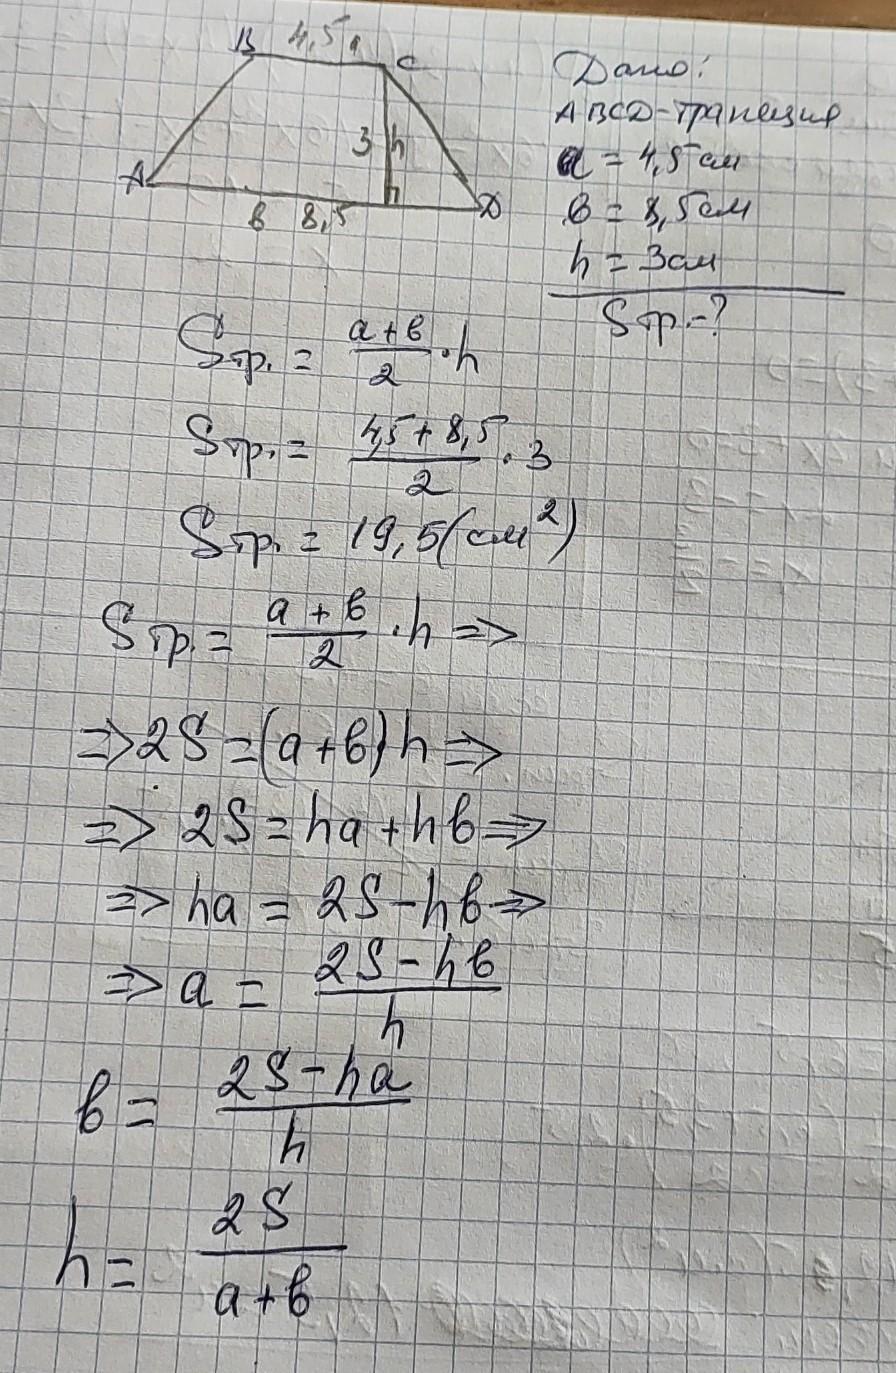 B 4,5 a C
3 h
A
в 8,5 D
Дано:
ABCD-трапеция
a = 4,5 см
в = 8,5 см
h = 3 см
Sтр.-?
Sтр. = a+в/2 · h
Sтр. = 4,5+8,5/2 · 3
Sтр. = 19,5 (см²)
Sтр. = a+в/2 · h =>
=> 2S = (a+в) h =>
=> 2S = ha + hв =>
=> ha = 2S - hв =>
=> a = 2S - hв/h
в = 2S - ha/h
h = 2S/a+в